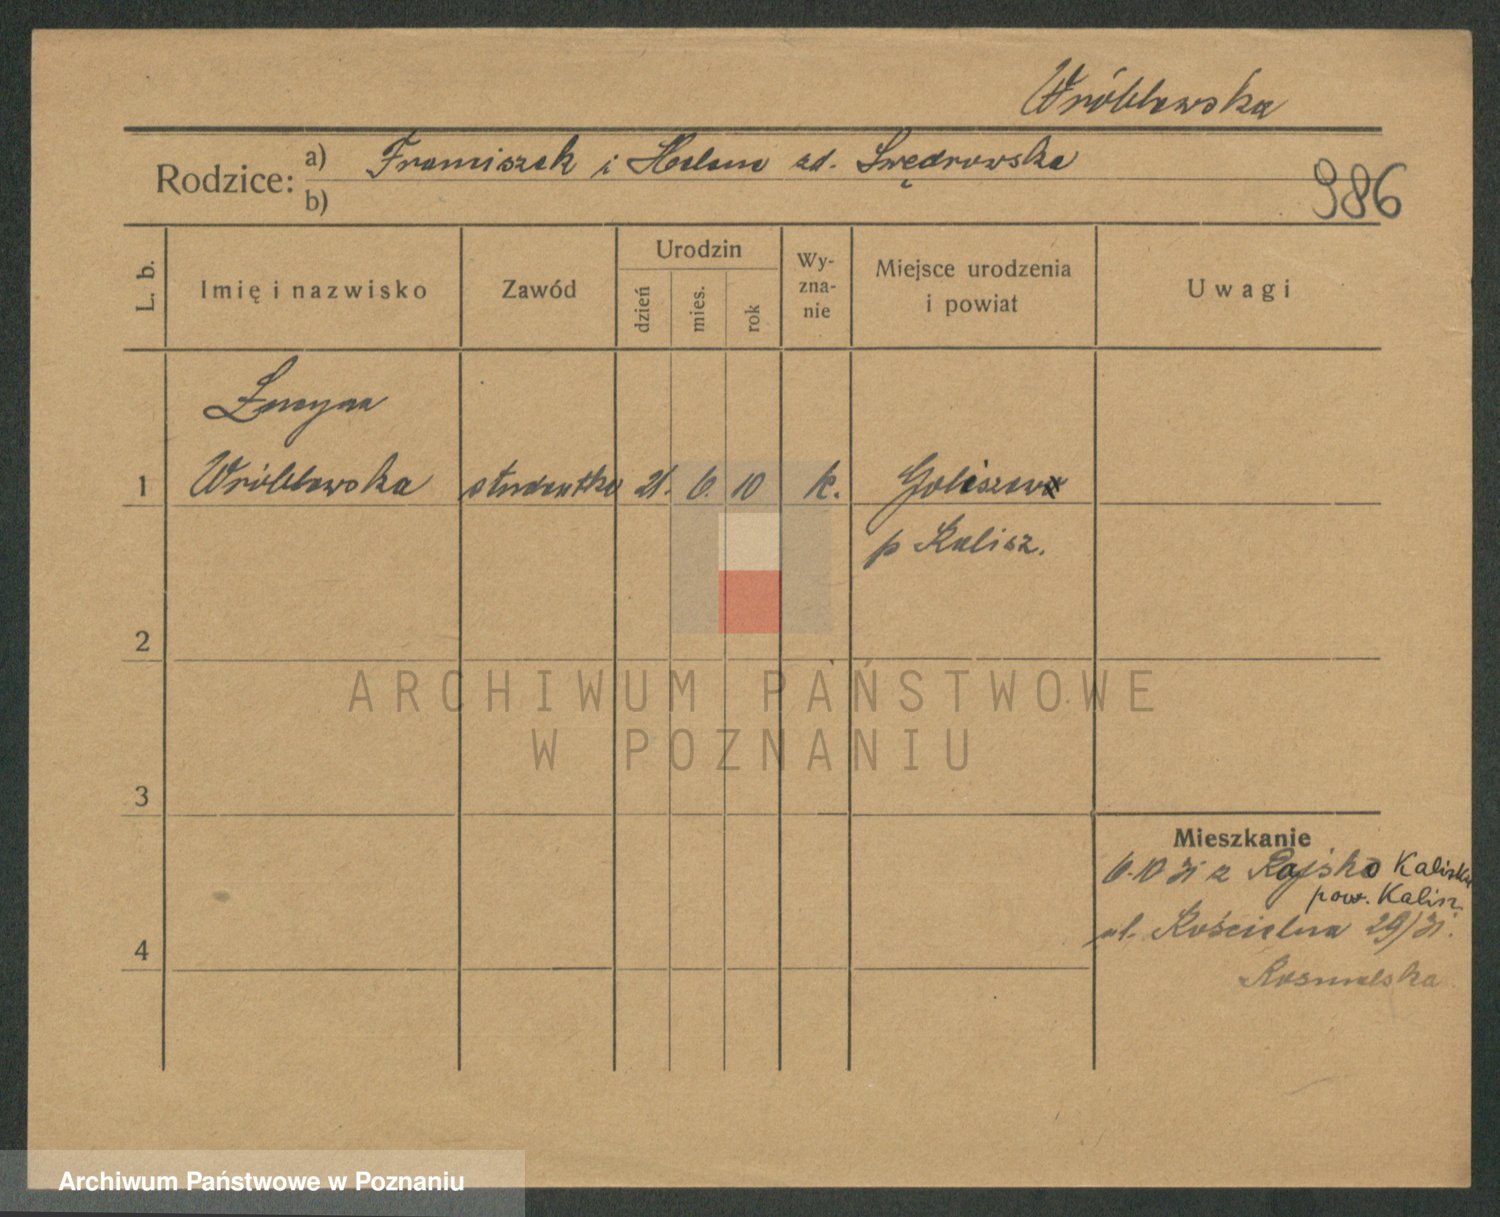 Wróblewska
Rodzice: a) Franciszek i Helena zd. Swędrowska
b)
986
L. b. Imię i nazwisko Zawód Urodzin dzień mies. rok Wy-zna-nie Miejsce urodzenia i powiat Uwagi
Lucyna
1 Wróblewska studentka 21. 6. 10 k. Goliszew
p Kalisz.
2
ARCHIWUM PAŃSTWOWE
W POZNANIU
3
Mieszkanie
6.10 31 z Rajsko Kaliskie
pow. Kalisz.
ul. Kościelna 29/31.
4
Archiwum Państwowe w Poznaniu